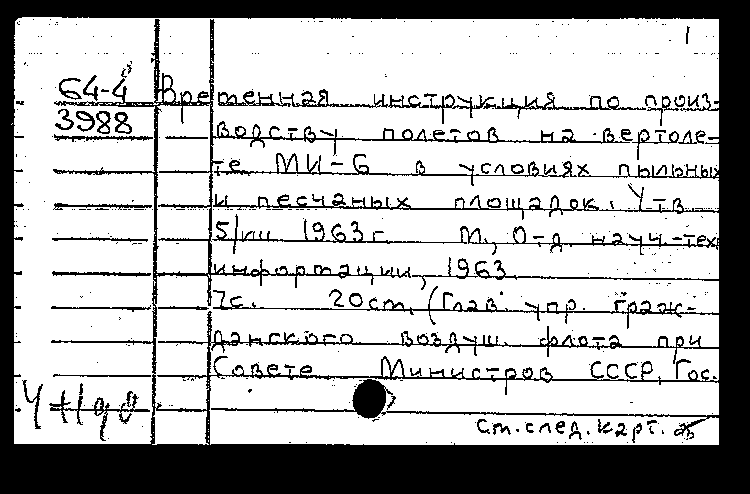 1
64-4 Временная инструкция по произ-
3988 водству полетов на вертоле-
те МИ-6 в условиях пыльных
и песчаных площадок. Утв
5/VIII 1963 г. М., Отд. науч.-тех
информации, 1963.
7с. 20см. (Глав. упр. граж-
данского воздуш. флота при
Совете Министров СССР, Гос.
см. след. карт.